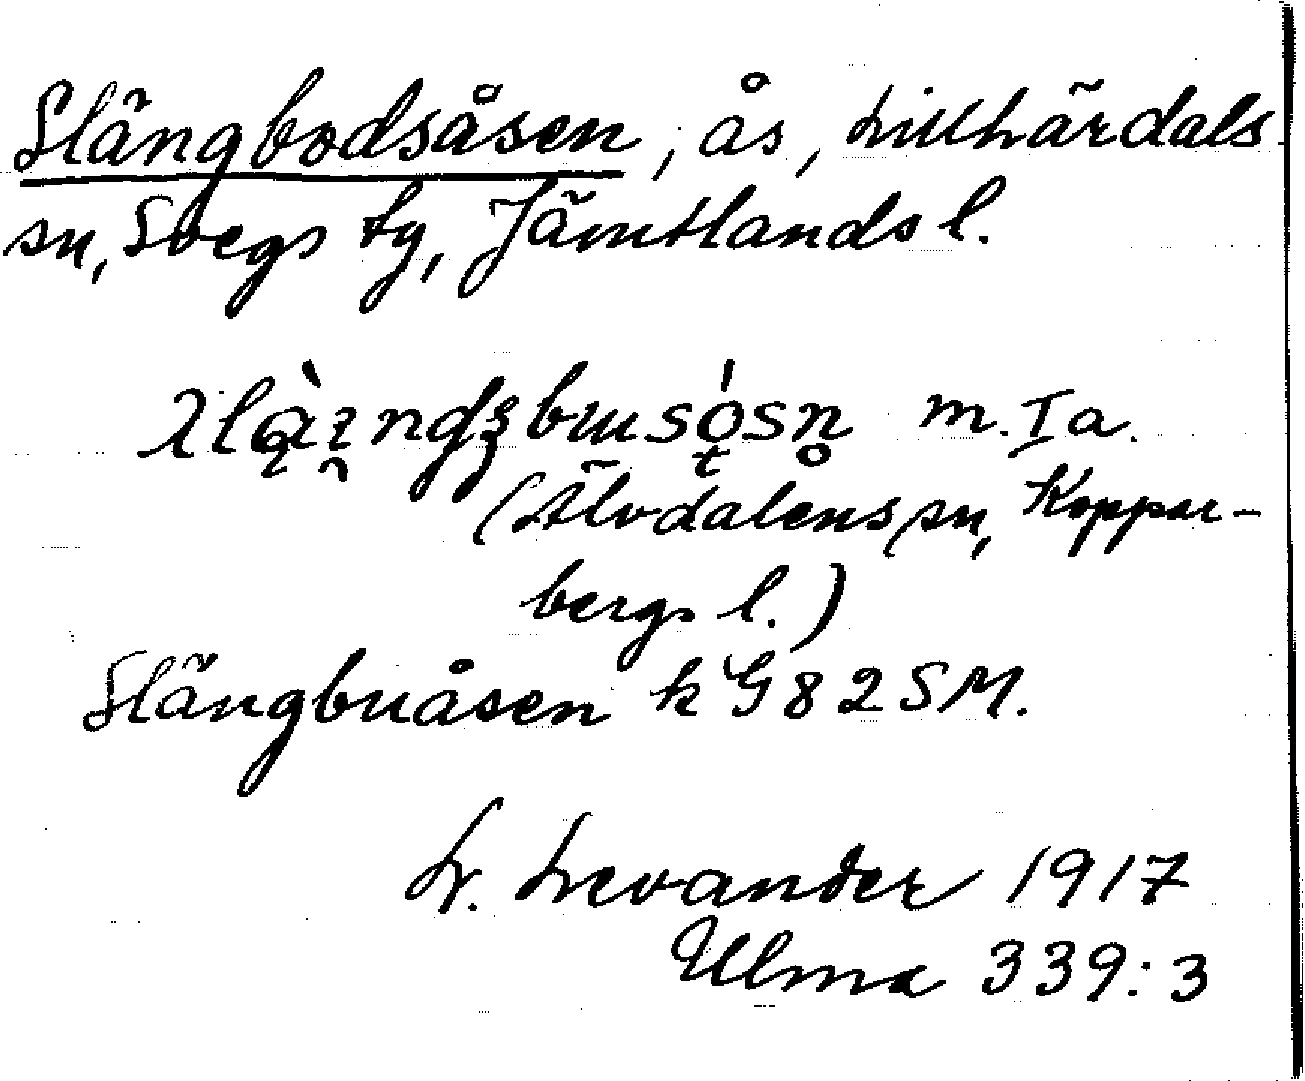 Slängbodsåsen, ås, Lillhärdals
sn, Svegs tg, Jämtlands l.
m. Ia.
(Älvdalens sn, Koppar-
bergs l.)
Slängbuåsen k G82SM.
L. Levander 1917
Ulma 339:3